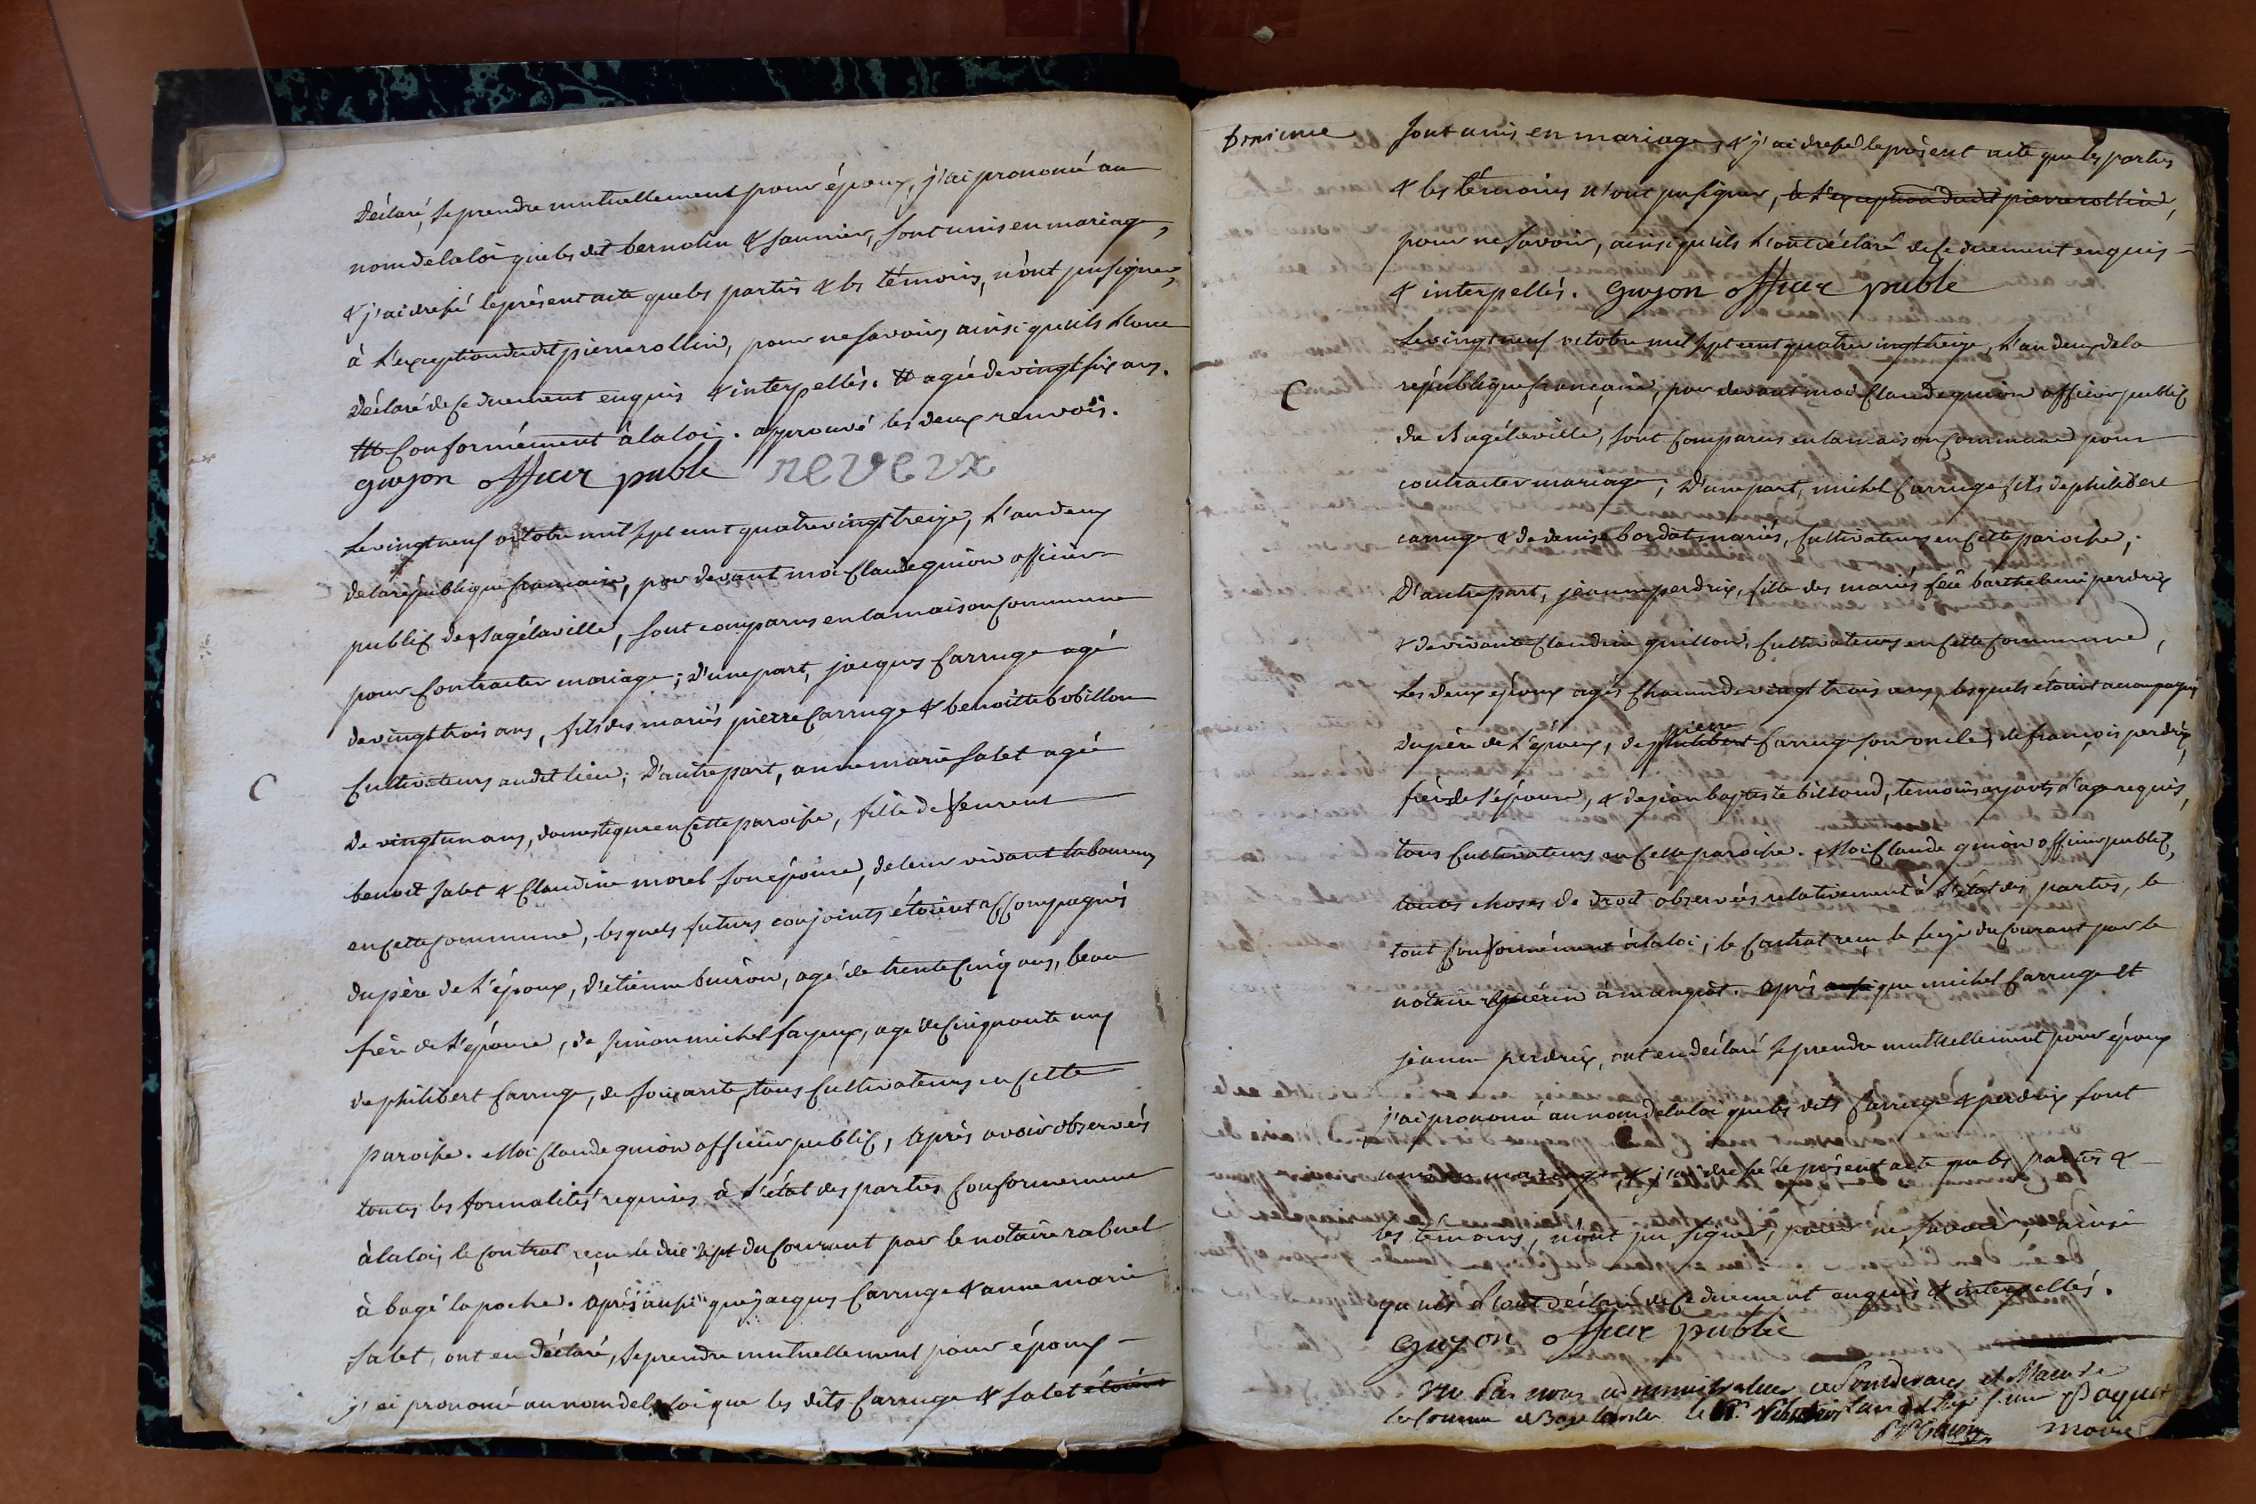 Déclaré, se prendre mutuellement pour époux, j'ai prononé au
nom de la loi que les dit bernolin & saunier, sont unis en mariage,
& j'ai dressé le présent acte que les partis & les témoins, n'ont pu signer,
à l'exception dudit pierre rollin, pour ne savoir, ainsi qu'ils l'ont
Déclaré de ce duement enquis & interpellés. # agée de vingt six ans.
## Conformément à la loi. approuvé les deux renvois.
guyon officier public reveux
Le vingt neuf octobre mil sept cent quatre vingt treize, l'an deux
de la république francaise, par devant moi Claude guion officier
public de Bagé la ville, sont comparus en la maison commune
pour contracter mariage; d'une part, jacques Carruge agé
de vingt trois ans, fils des mariés pierre Carruge & benoitte bobillon
Cultivateurs audit lieu; D'autre part, anne marie salet agée
C
de vingt un ans, domestique en cette paroisse, fille de feu
benoit salet & Claudine morel son épouse, de leur vivant laboureurs
en cette commune, lesquels futurs conjoints étoient accompagnés
du père de l'époux, d'étienne buiron, agé de trente cinq ans, beau
frère de l'épouse, de simon michel fayeux, agé de cinquante ans
de philibert Carruge, de soixante, tous Cultivateurs en cette
paroisse. Moi Claude guion officier public, après avoir observés
toutes les formalités requises à l'état des parties conformement
à la loi, le contrat reçu le dix sept du courant par le notaire rabuel
à bagé la poche. après aussi que jacques Carruge & anne marie
salet, ont en déclaré, se prendre mutuellement pour époux
j'ai prononé au nom de la loi que les dits Carruge & salet étoient
sont unis en mariage, & j'ai dressé le présent acte que les parties
& les témoins n'ont pu signer, à l'exception dudit pierre rollin,
pour ne savoir, ainsi qu'ils l'ont déclaré de ce duement enquis
& interpellés. guyon officier public
Le vingt neuf octobre mil sept cent quatre vingt treize, l'an deux de la
C
république francaise, par devant moi Claude guion officier public
de Bagé la ville, sont comparus en la maison commune pour
contracter mariage; D'une part, michel Carruge fils de philibert
carruge & de denise bordat mariés, Cultivateurs en cette paroisse;
D'autre part, jeanne perdrix, fille des mariés feu barthelemi perdrix
& de vivante Claudine guillon, Cultivateurs en cette commune,
Les deux époux agés chacun de vingt trois ans, lesquels étoient accompagnés
pierre
du père de l'époux, de philibert Carruge son oncle, de françois perdrix,
frère de l'épouse, & de jean baptiste billoud, temoins ayants l'age requis,
tous Cultivateurs en cette paroisse. Moi Claude guion officier public,
toutes choses de droit observées relativement à l'état des parties, le
tout conformément à la loi; le contrat reçu le seize du courant par le
notaire Guérin à mangiot. Après aussi que michel Carruge &
jeanne perdrix, ont en déclaré se prendre mutuellement pour époux
j'ai prononé au nom de la loi que les dits Carruge & perdrix sont
unis en mariage, & j'ai dressé le présent acte que les parties &
les témoins, n'ont pu signer, pour ne savoir, ainsi
qu'ils l'ont déclaré de ce duement enquis & interpellés.
guyon officier public
Vu par nous administrateur et Maire de
la Commune de Bagé la ville le
Paquet
maire